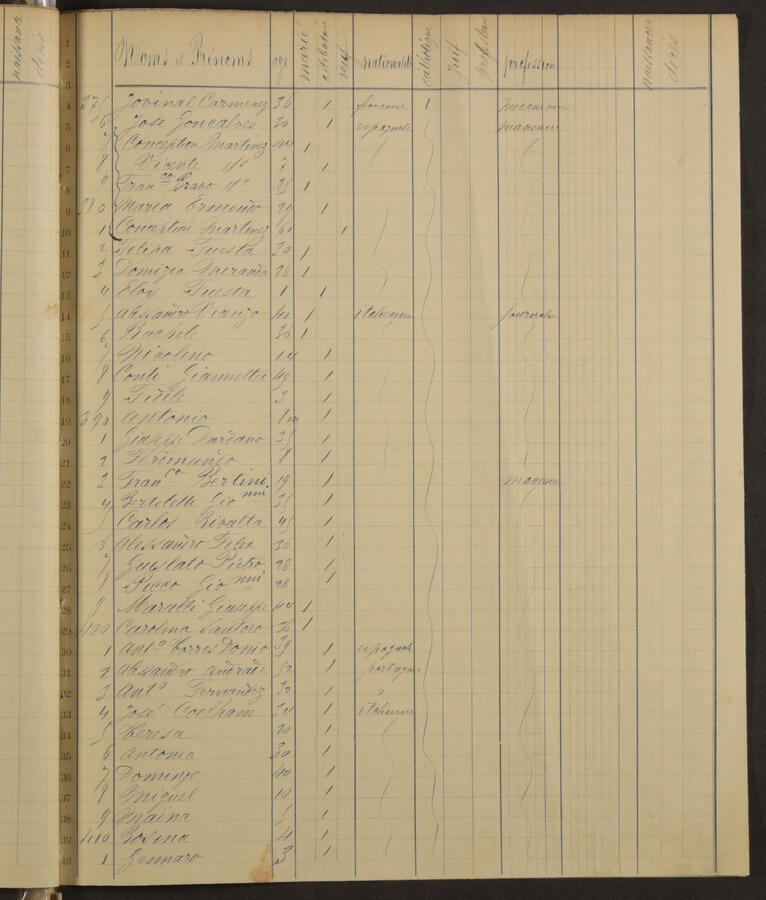 naissance décès
Noms et Prénoms age marié célibataire veuf nationalité catholique juif protestant profession naissances décès
1
2
3
4 375 Jovinal Carmenez 36 1 1
5 6 José Goncalves 30 1 espagnole manœuvre
6 7 Conception Martinez 40 1
7 8 Vicente do 7 1
8 9 Franco Bravo do 35 1
9 380 Maria Ermento 20 1
10 1 Conception Martinez 60 1
11 2 Felipa Fuesta 30 1
12 3 Domizio Miranda 28 1
13 4 Eloy Fuesta 1 1
14 5 Alessandro Vicenzo 40 1 italienne journalier
15 6 Rachele 36 1
16 7 Nicolino 14 1
17 8 Conti Giannetta 49 1
18 9 3 1
19 390 Antonio 8m 1
20 1 Giuseppe Darcano 35 1
21 2 8 1
22 3 Franco Bertini 19 1 manœuvre
23 4 Bertoletti Gionni 35 1
24 5 Carlos Rivalta 45 1
25 6 Alessandro Felix 36 1
26 7 Guislato Pietro 28 1
27 8 Picco Gionni 28 1
28 9 Maratti Giuseppe 40 1
29 400 Carolina Santoro 36 1
30 1 Anto Torres Donio 39 1 espagnole
31 2 Alessandro Andrade 52 1 portugais
32 3 Anto Fernandez 32 1 "
33 4 José Coelham 30 1 italienne
34 5 Theresa 20 1
35 6 Antonia 30 1
36 7 Domingo 40 1
37 8 Miguel 10 1
38 9 Maina 5 1
39 410 Rosina 4 1
40 1 Gennaro 3 1